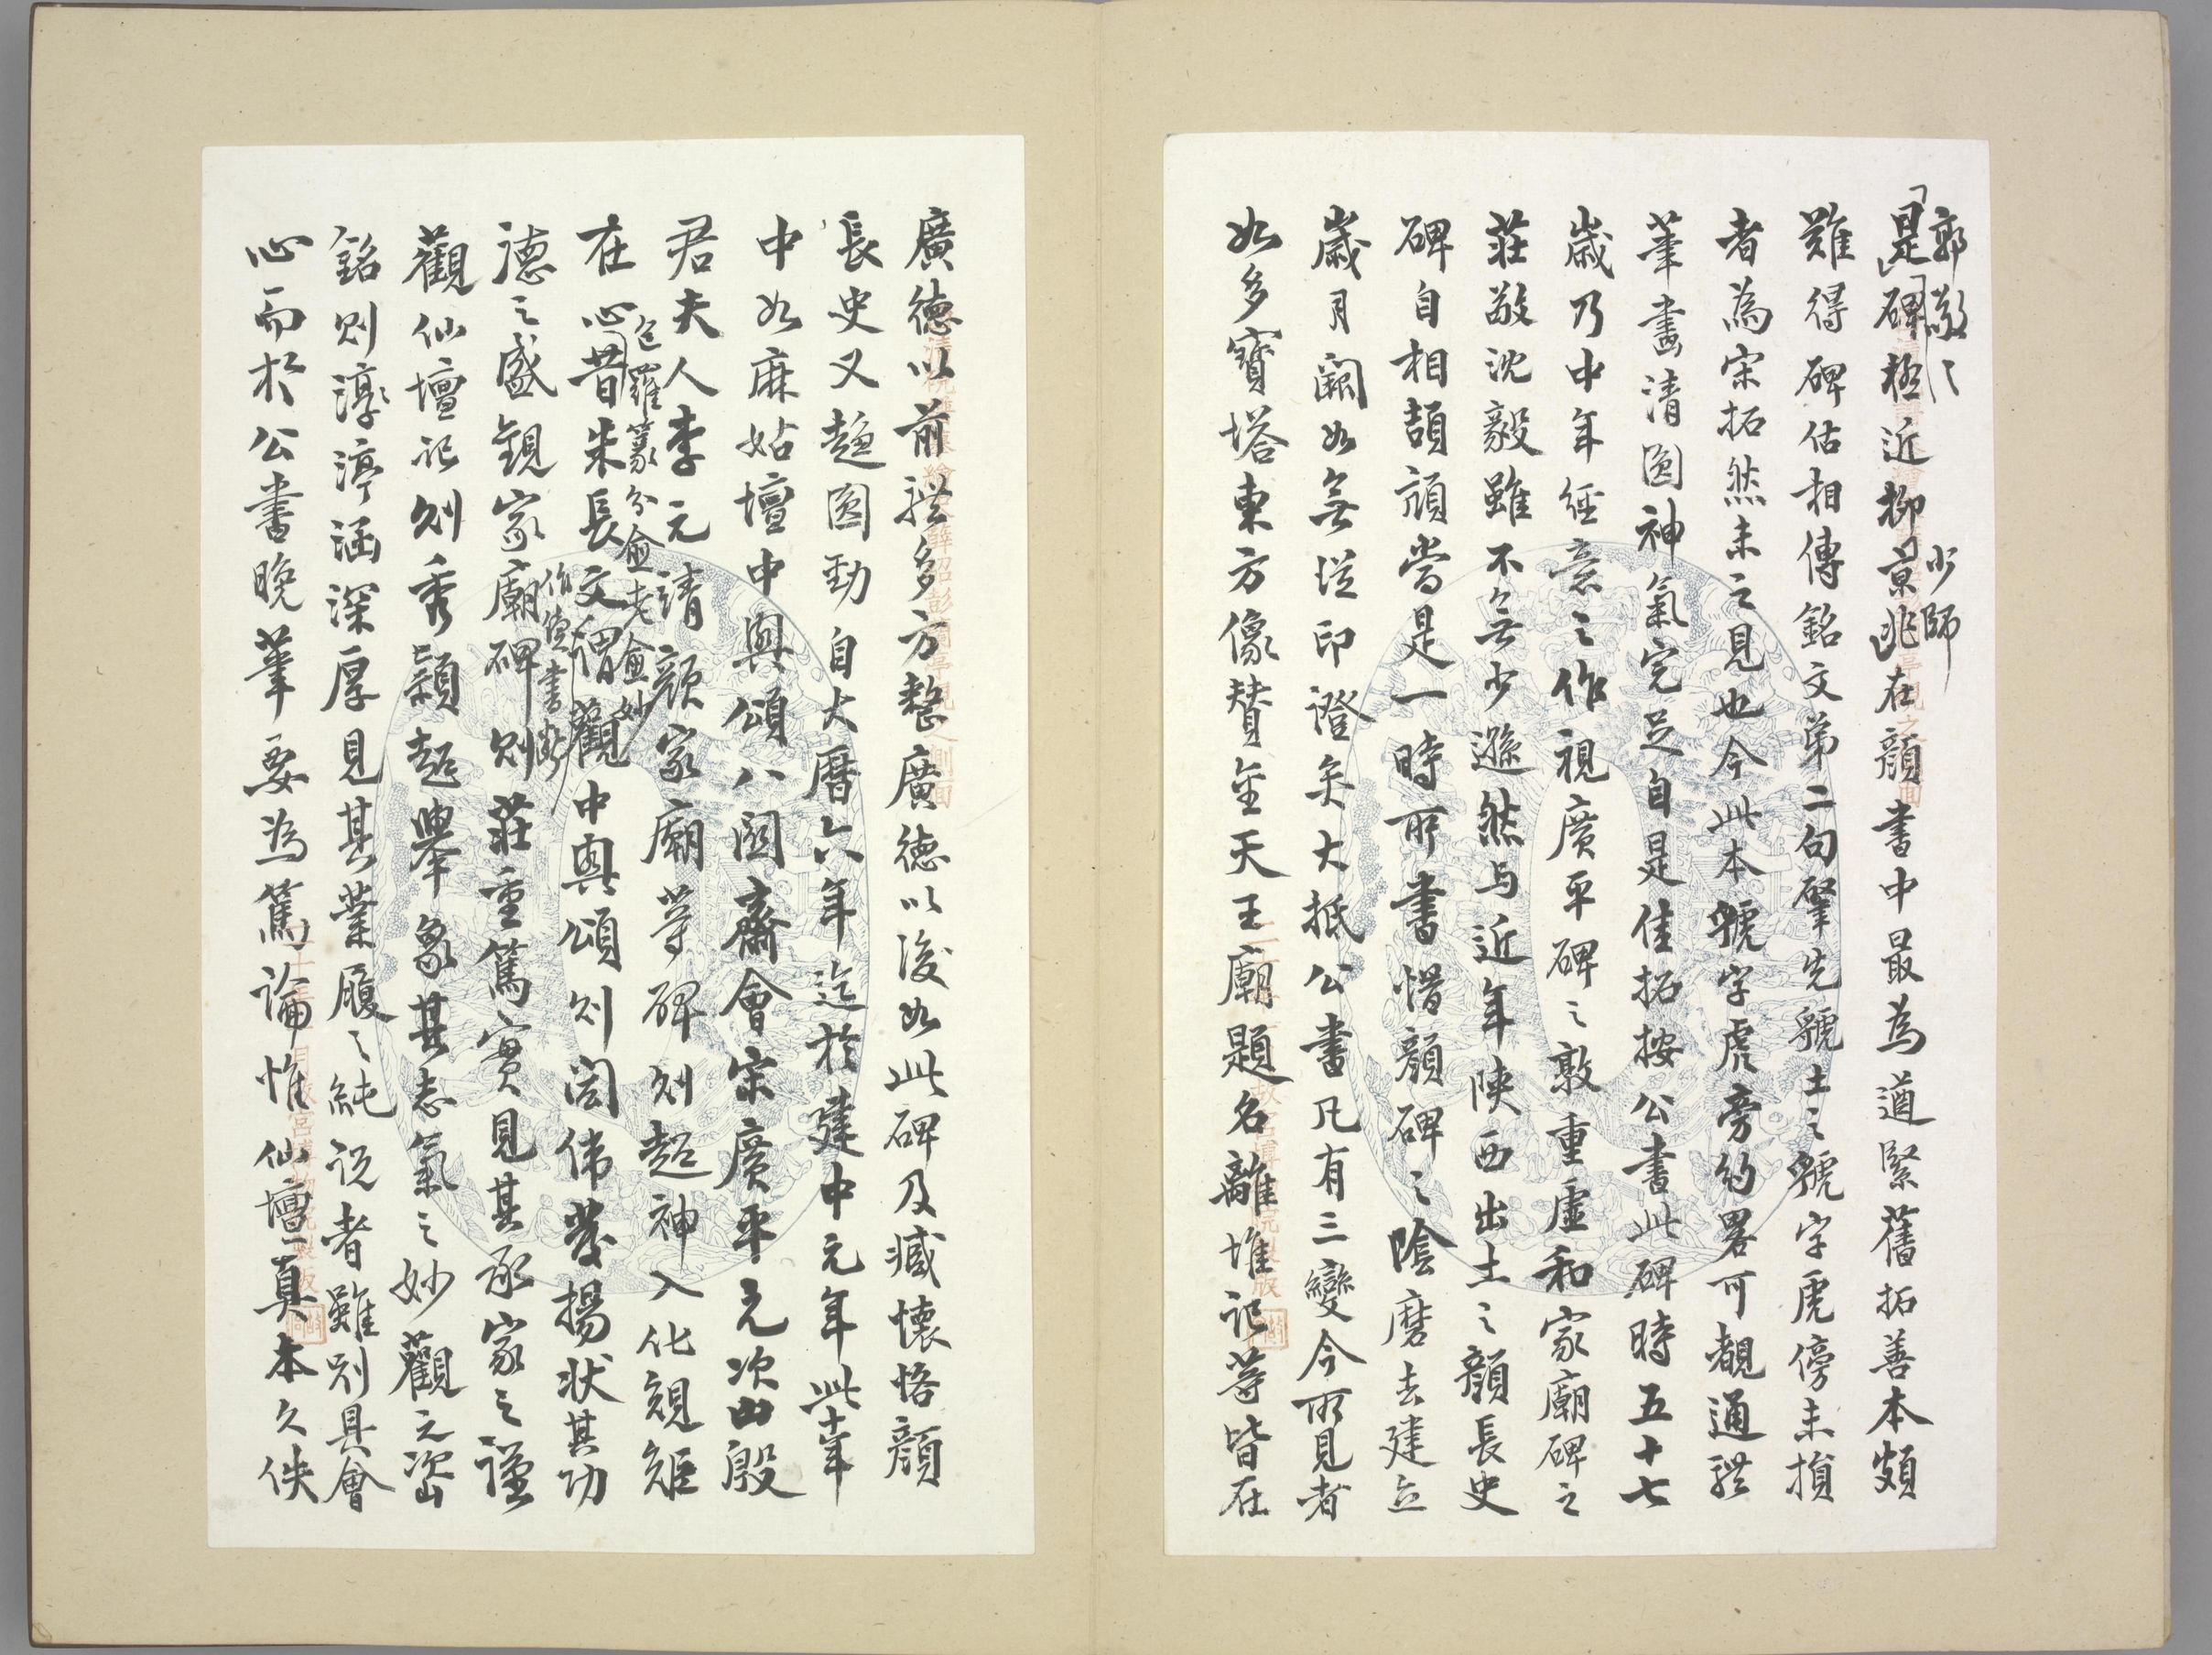 郭敬之
少師
是碑極近柳京兆在顏書中最為遒緊舊拓善本頗
難得碑估相傳銘文弟二句肈先虢土之虢字虎傍未損
者為宋拓然未之見也今此本虢字虎旁約畧可覩通體
筆畫清圓神氣完足自是佳拓按公書此碑時五十七
歲乃中年經意之作視廣平碑之敦重虛和家廟碑之
莊敬沈毅雖不無少遜然与近年陝西出土之顏長史
碑自相頡頏當是一時所書惜顏碑之陰磨去建立
歲月闕如無從印證矣大抵公書凡有三變今所見者
如多寶塔東方像贊金天王廟題名離堆記等皆在
廣德以前體多方整廣德以後如此碑及臧懷恪顏
長史又趨圓勁自大曆六年迄於建中元年此十年
中如麻姑壇中興頌八關齋會宋廣平元次山殷
君夫人李元靖顏家廟等碑則超神入化規矩
包羅篆分愈老愈妙
在心昔朱長文謂觀中興頌則閎偉發揚狀其功
伯原書斷
德之盛觀家廟碑則莊重篤實見其承家之謹
觀仙壇記則秀穎超舉象其志氣之妙觀元次山
銘則淳涵深厚見其業履之純說者雖別具會
心而於公書晚筆要為篤論惟仙壇真本久佚